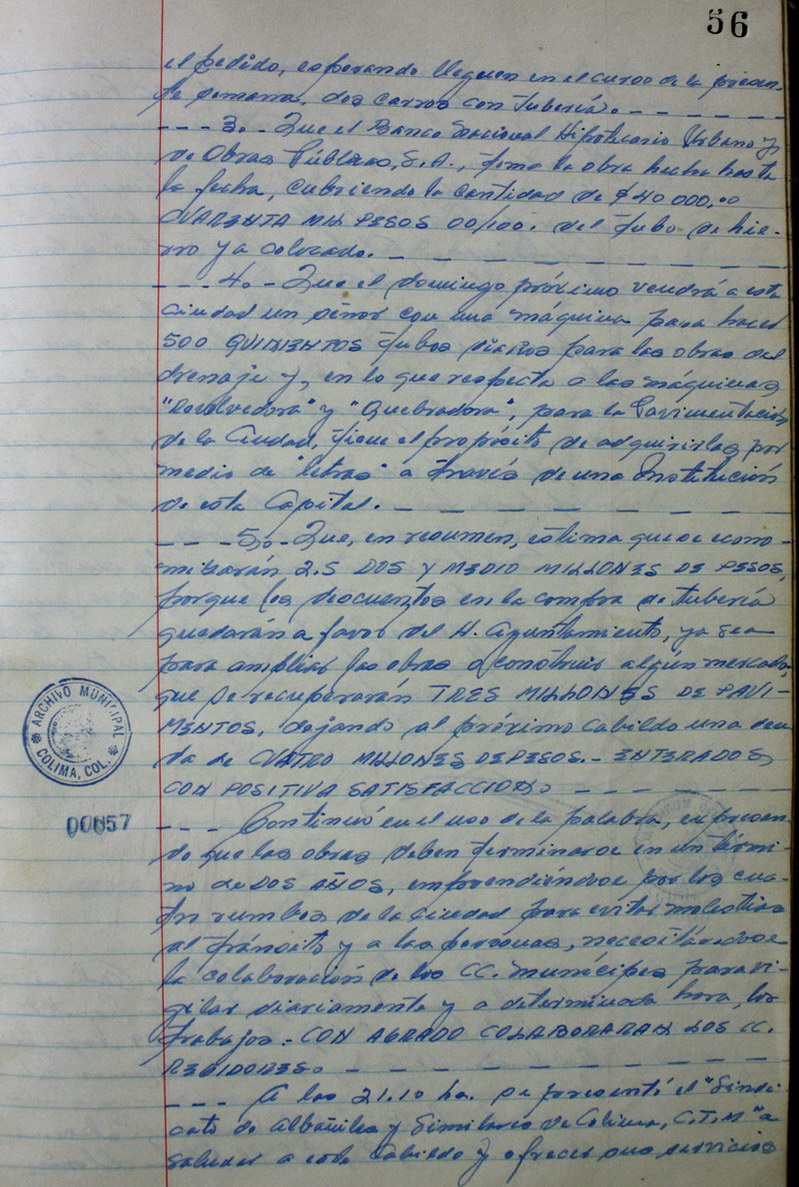 56
el pedido, esperando lleguen en el curso de la presen-
te semana, dos carros con tubería. - - - - - - -
- - - 3o.- Que el Banco Nacional Hipotecario Urbano y
de Obras Públicas, S.A., tome la obra hecha hasta
la fecha, cubriendo la cantidad de $40 000.00
CUARENTA MIL PESOS 00/100. del tubo de hie-
rro ya colocado. - - - - - - - - - -
- - - 4o.- Que el domingo próximo vendrá a esta
ciudad un señor con una máquina para hacer
500 QUINIENTOS tubos diarios para las obras del
drenaje y, en lo que respecta a las máquinas
"Revolvedora" y "Quebradora", para la Pavimentación
de la Ciudad, tiene el propósito de adquirirlas por
medio de "letras" a través de una Institución
de esta Capital. - - - - - - - - - -
- - - 5o.- Que, en resumen, estima que se econo-
mizarán 2.5 DOS Y MEDIO MILLONES DE PESOS,
porque los descuentos en la compra de tubería
quedarán a favor del H. Ayuntamiento, ya sea
para ampliar las obras o construir algún mercado,
que se recuperarán TRES MILLONES DE PAVI-
MENTOS, dejando al próximo Cabildo una deu-
da de CUATRO MILLONES DE PESOS.- ENTERADOS,
CON POSITIVA SATISFACCION. - - - - - - -
- - - Continuó en el uso de la palabra, expresan-
do que las obras deben terminarse en un térmi-
no de DOS AÑOS, emprendiéndose por los cua-
tro rumbos de la ciudad para evitar molestias
al tránsito y a las personas, necesitándose
la colaboración de los CC. Munícipes para vi-
gilar diariamente y a determinada hora, los
trabajos.- CON AGRADO COLABORARAN LOS CC.
REGIDORES. - - - - - - - - - -
- - - A las 21.10 hs. se presentó el "Sindi-
cato de Albañiles y Similares de Colima, C.T.M" a
saludar a este Cabildo y ofrecer sus servicios
ARCHIVO MUNICIPAL
COLIMA, COL.
00057